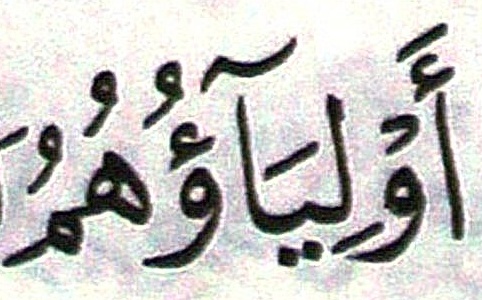 أَوْلِيَآؤُهُمُ